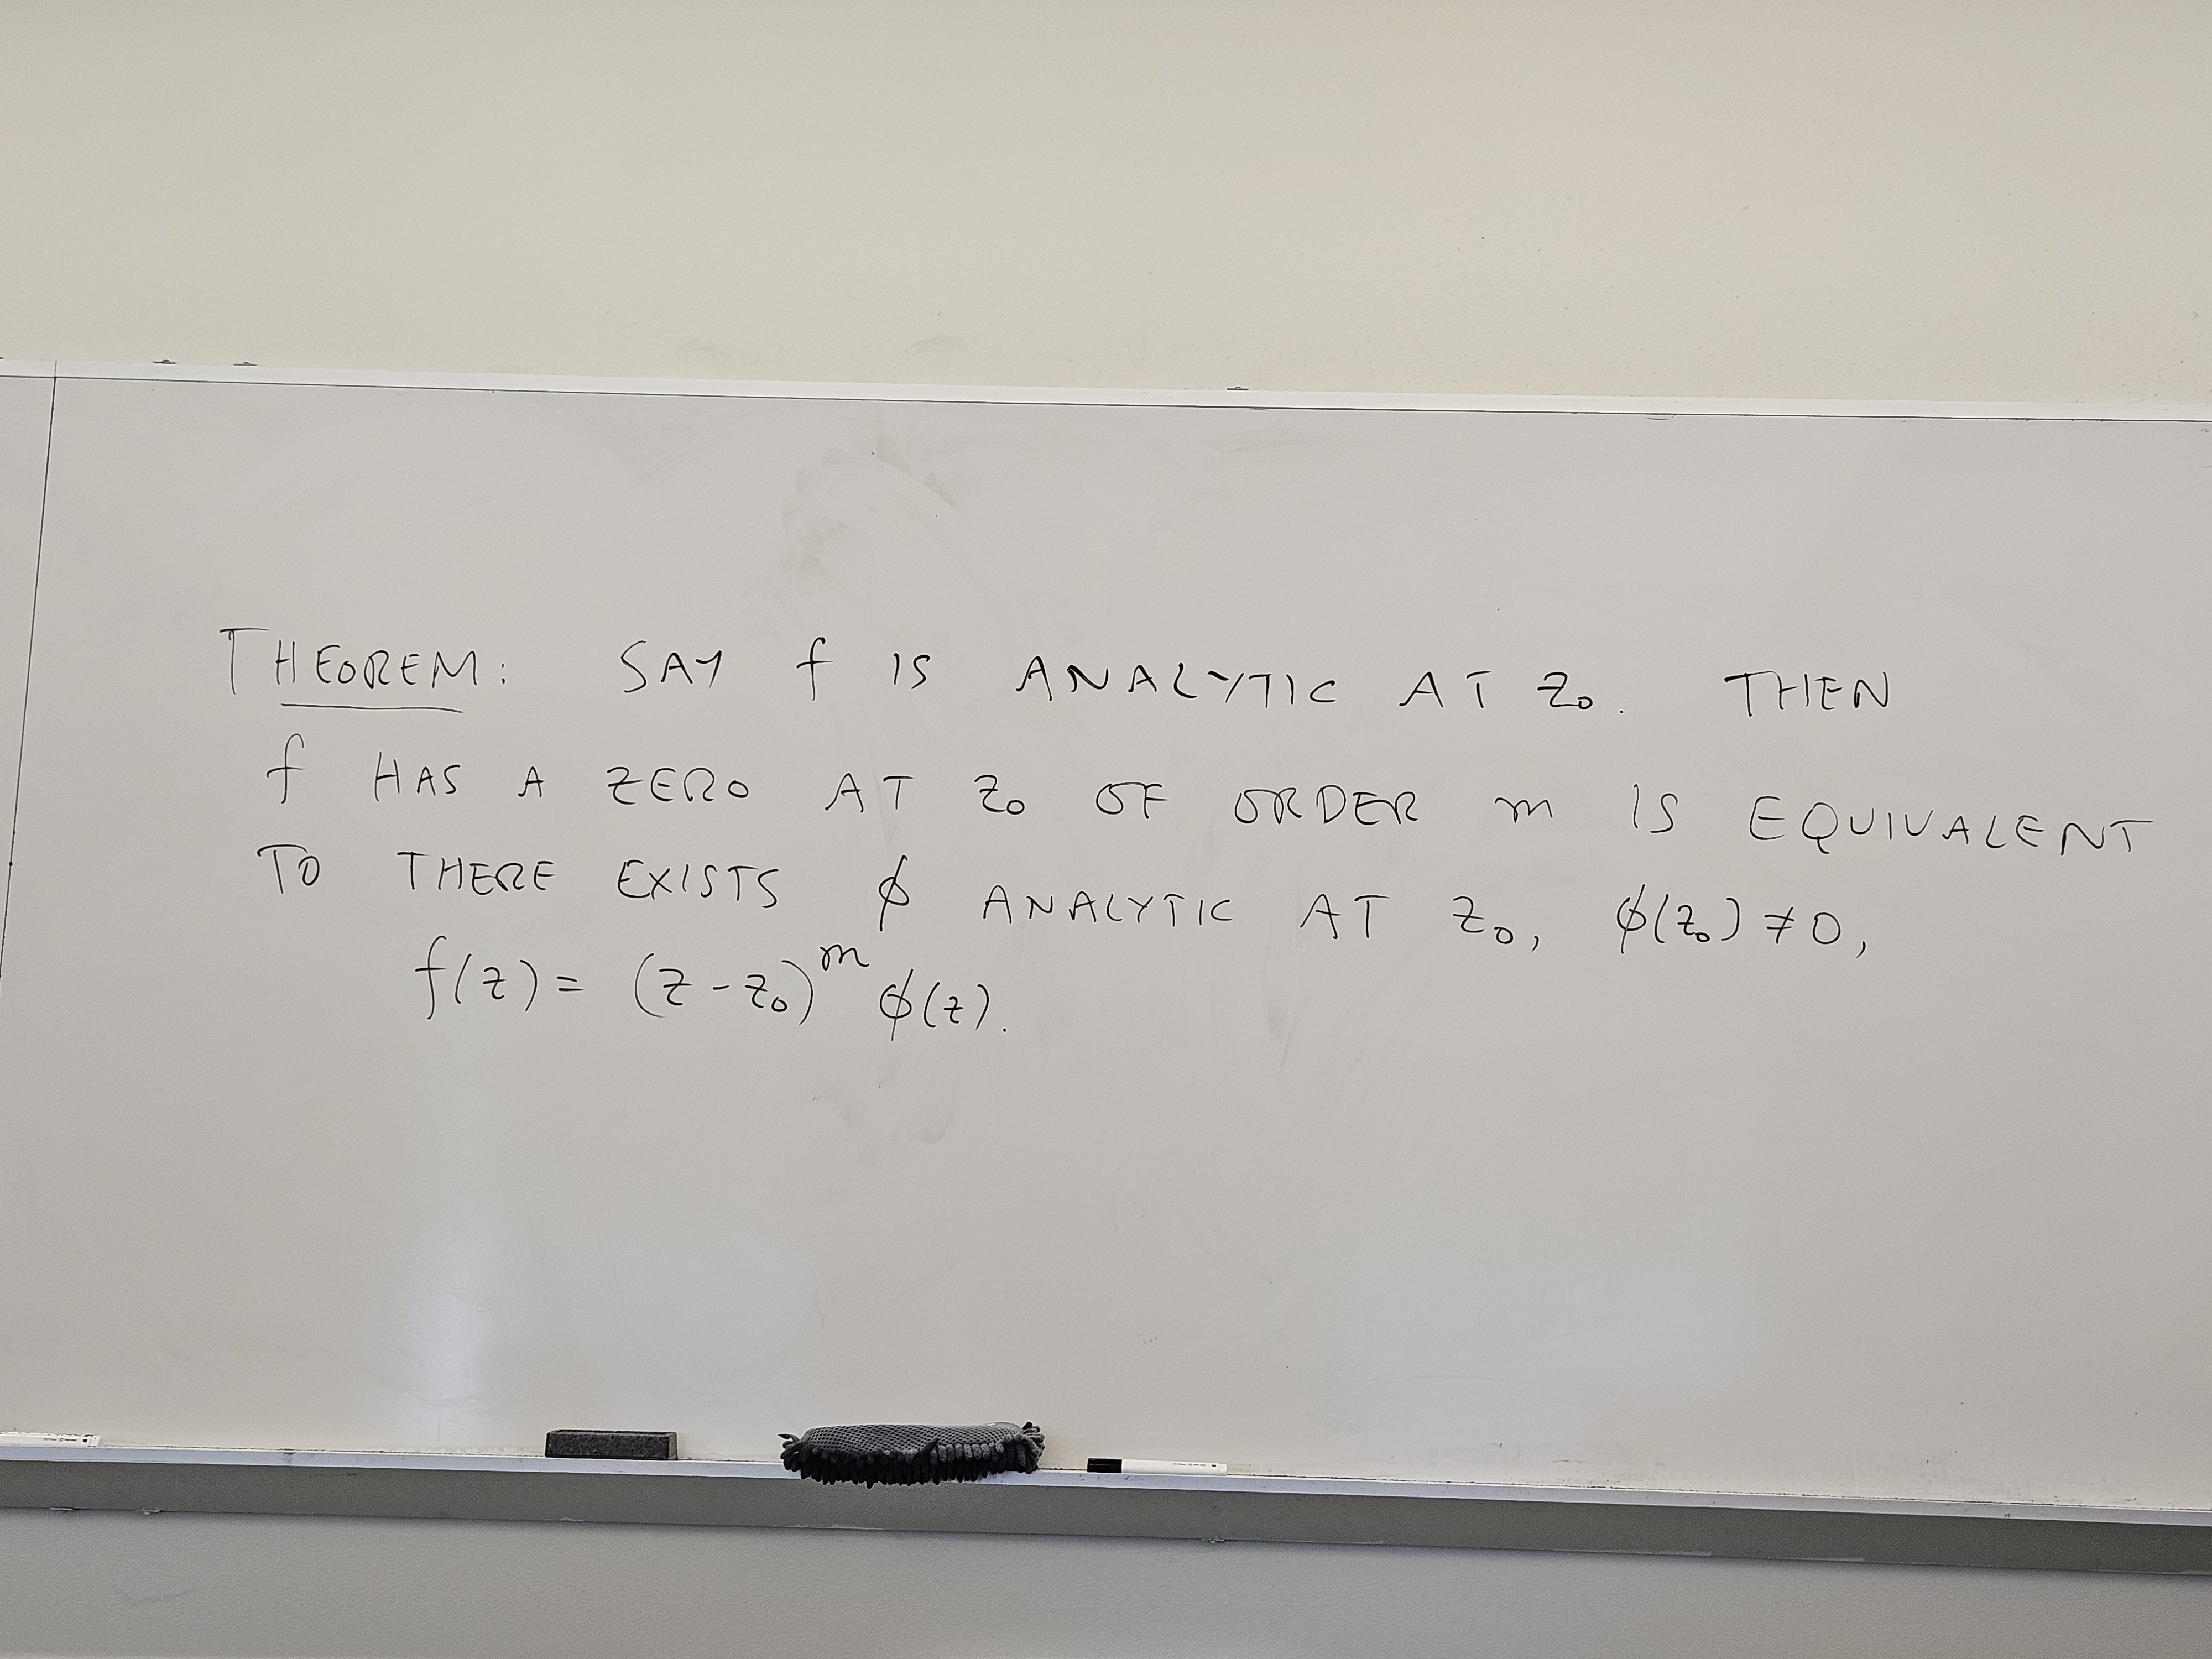 THEOREM: SAY f IS ANALYTIC AT z₀. THEN
f HAS A ZERO AT z₀ OF ORDER m IS EQUIVALENT
TO THERE EXISTS ϕ ANALYTIC AT z₀, ϕ(z₀) ≠ 0,
f(z) = (z - z₀)ᵐ ϕ(z).